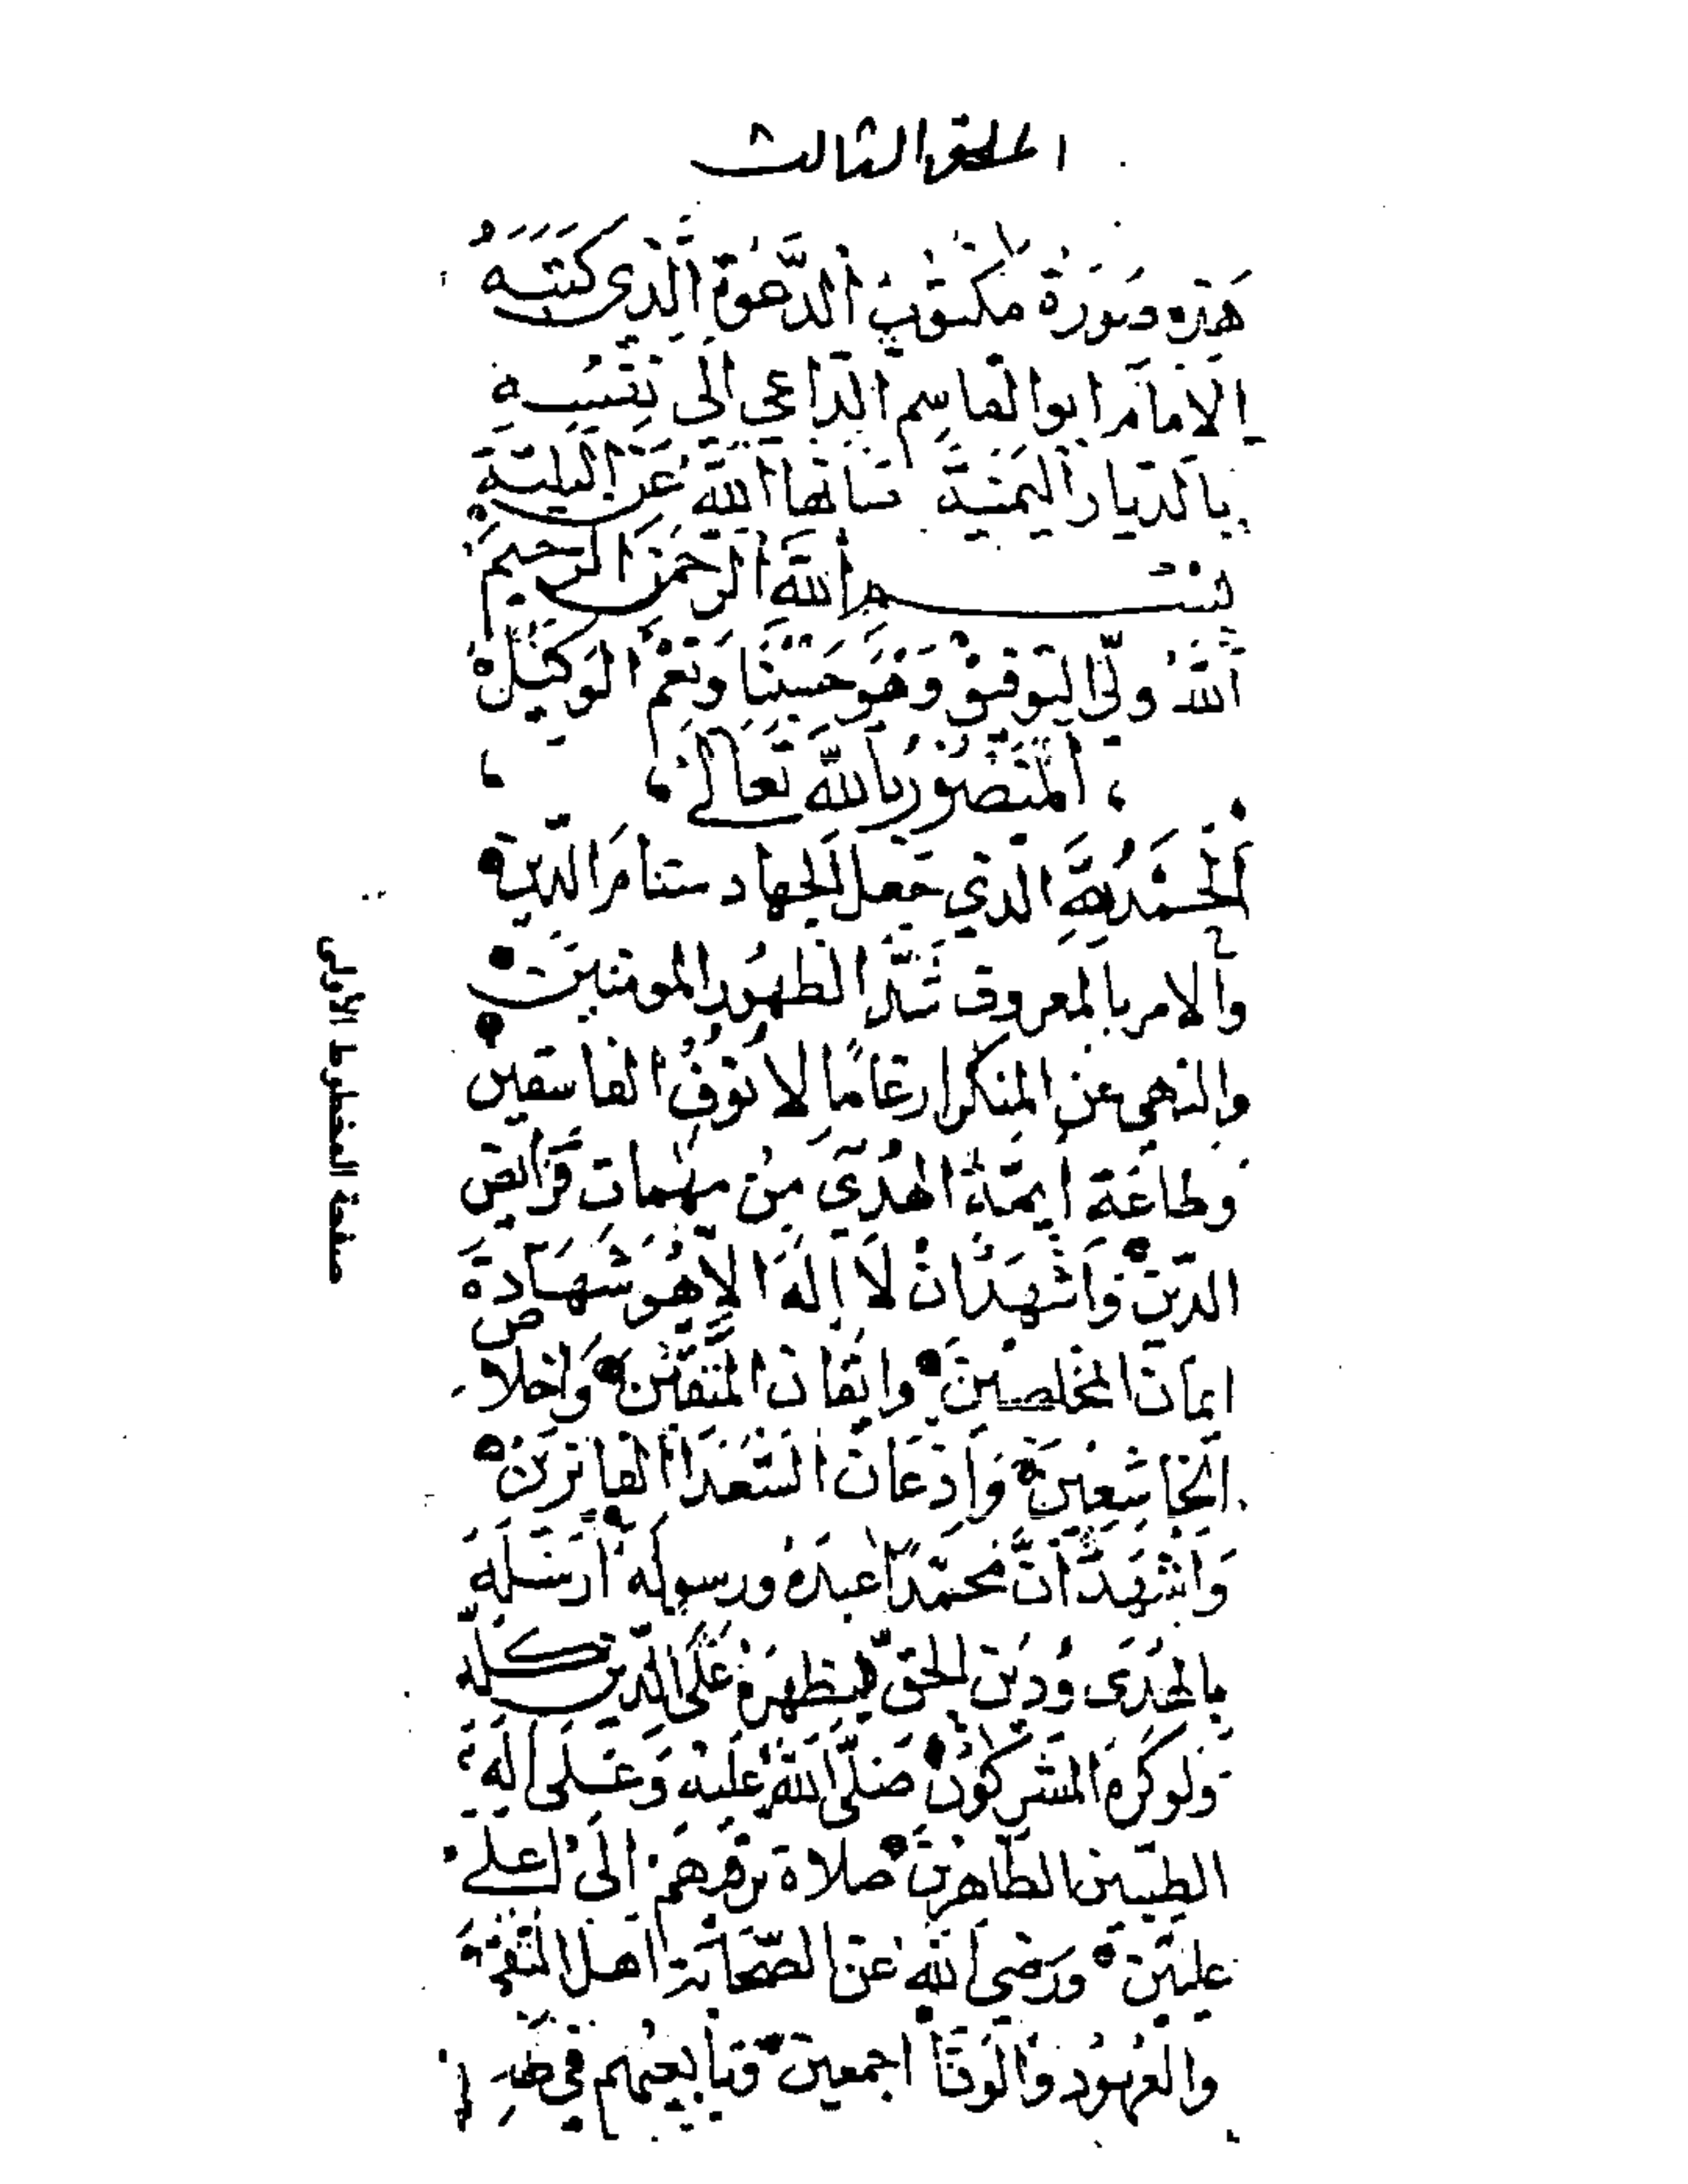 الملحق الثالث
هَذِه صُورَةُ مَكتوُب الدَّعْوَة الَّذِي كَتَبَهُ
الإِمَامَ ابو القاسِم الدَاعِي الى نفسِهِ
بِالدِيَار اليَمَنيَّة صَانَها اللَّه عَنِ البَليَّة
بِسْم اللَّه الرحمَن الرحِيمْ
اللَّهُ ولّي التوفيق وَهُوَ حَسْبُنَا وَنِعْمَ الوَكِيْل
المنْصُوْر بِاللَّه تَعَالَى
اَلْحَمْدُ لِلَّهِ الَّذِي جَعَل الجهاد سنامَ الدِّين
وَالامر بالمعروف شَدَّا لظهُور المومنين
والنهى عَنِ المنكر ارغَامًا لِأنوُفُ الفاسقين
وَطاعَة ايمَّة الهُدَى مِنْ مهمَات فَرَائض
الدّين وَاَشْهَدُ ان لَا الَهَ الا هُوَ شَهَادَة
ايمَان المخلصِين وايقَان المتقين وَاخلاص
الخاشِعِين وَاِذعَانَ السُّعَدَا الفائزين
وَاَشْهَدُ اَنَّ مُحَمَّدًا عَبدُهُ ورسولُه اَرْسَلَهِ
بِالهُدَى وَدِيْن الحَقّ لِيُظْهِرَهُ عَلَى الدِّين كُله
وَلو كَرِهَ المشركُوْن صَلَّى اللَّهُ عَلَيْه وَعَلَى الِهِ
الطيبين الطَاهرِيْن صلاة ترفَعهُم الَى اعلَى
عليّين ورَضي اللَّه عَن الصَّحَابَة اهل التقوى
والعُهُود وَالوَفَا اجمعين وتابِعيهم في هَدِ
صفحة المخطوط الأولى